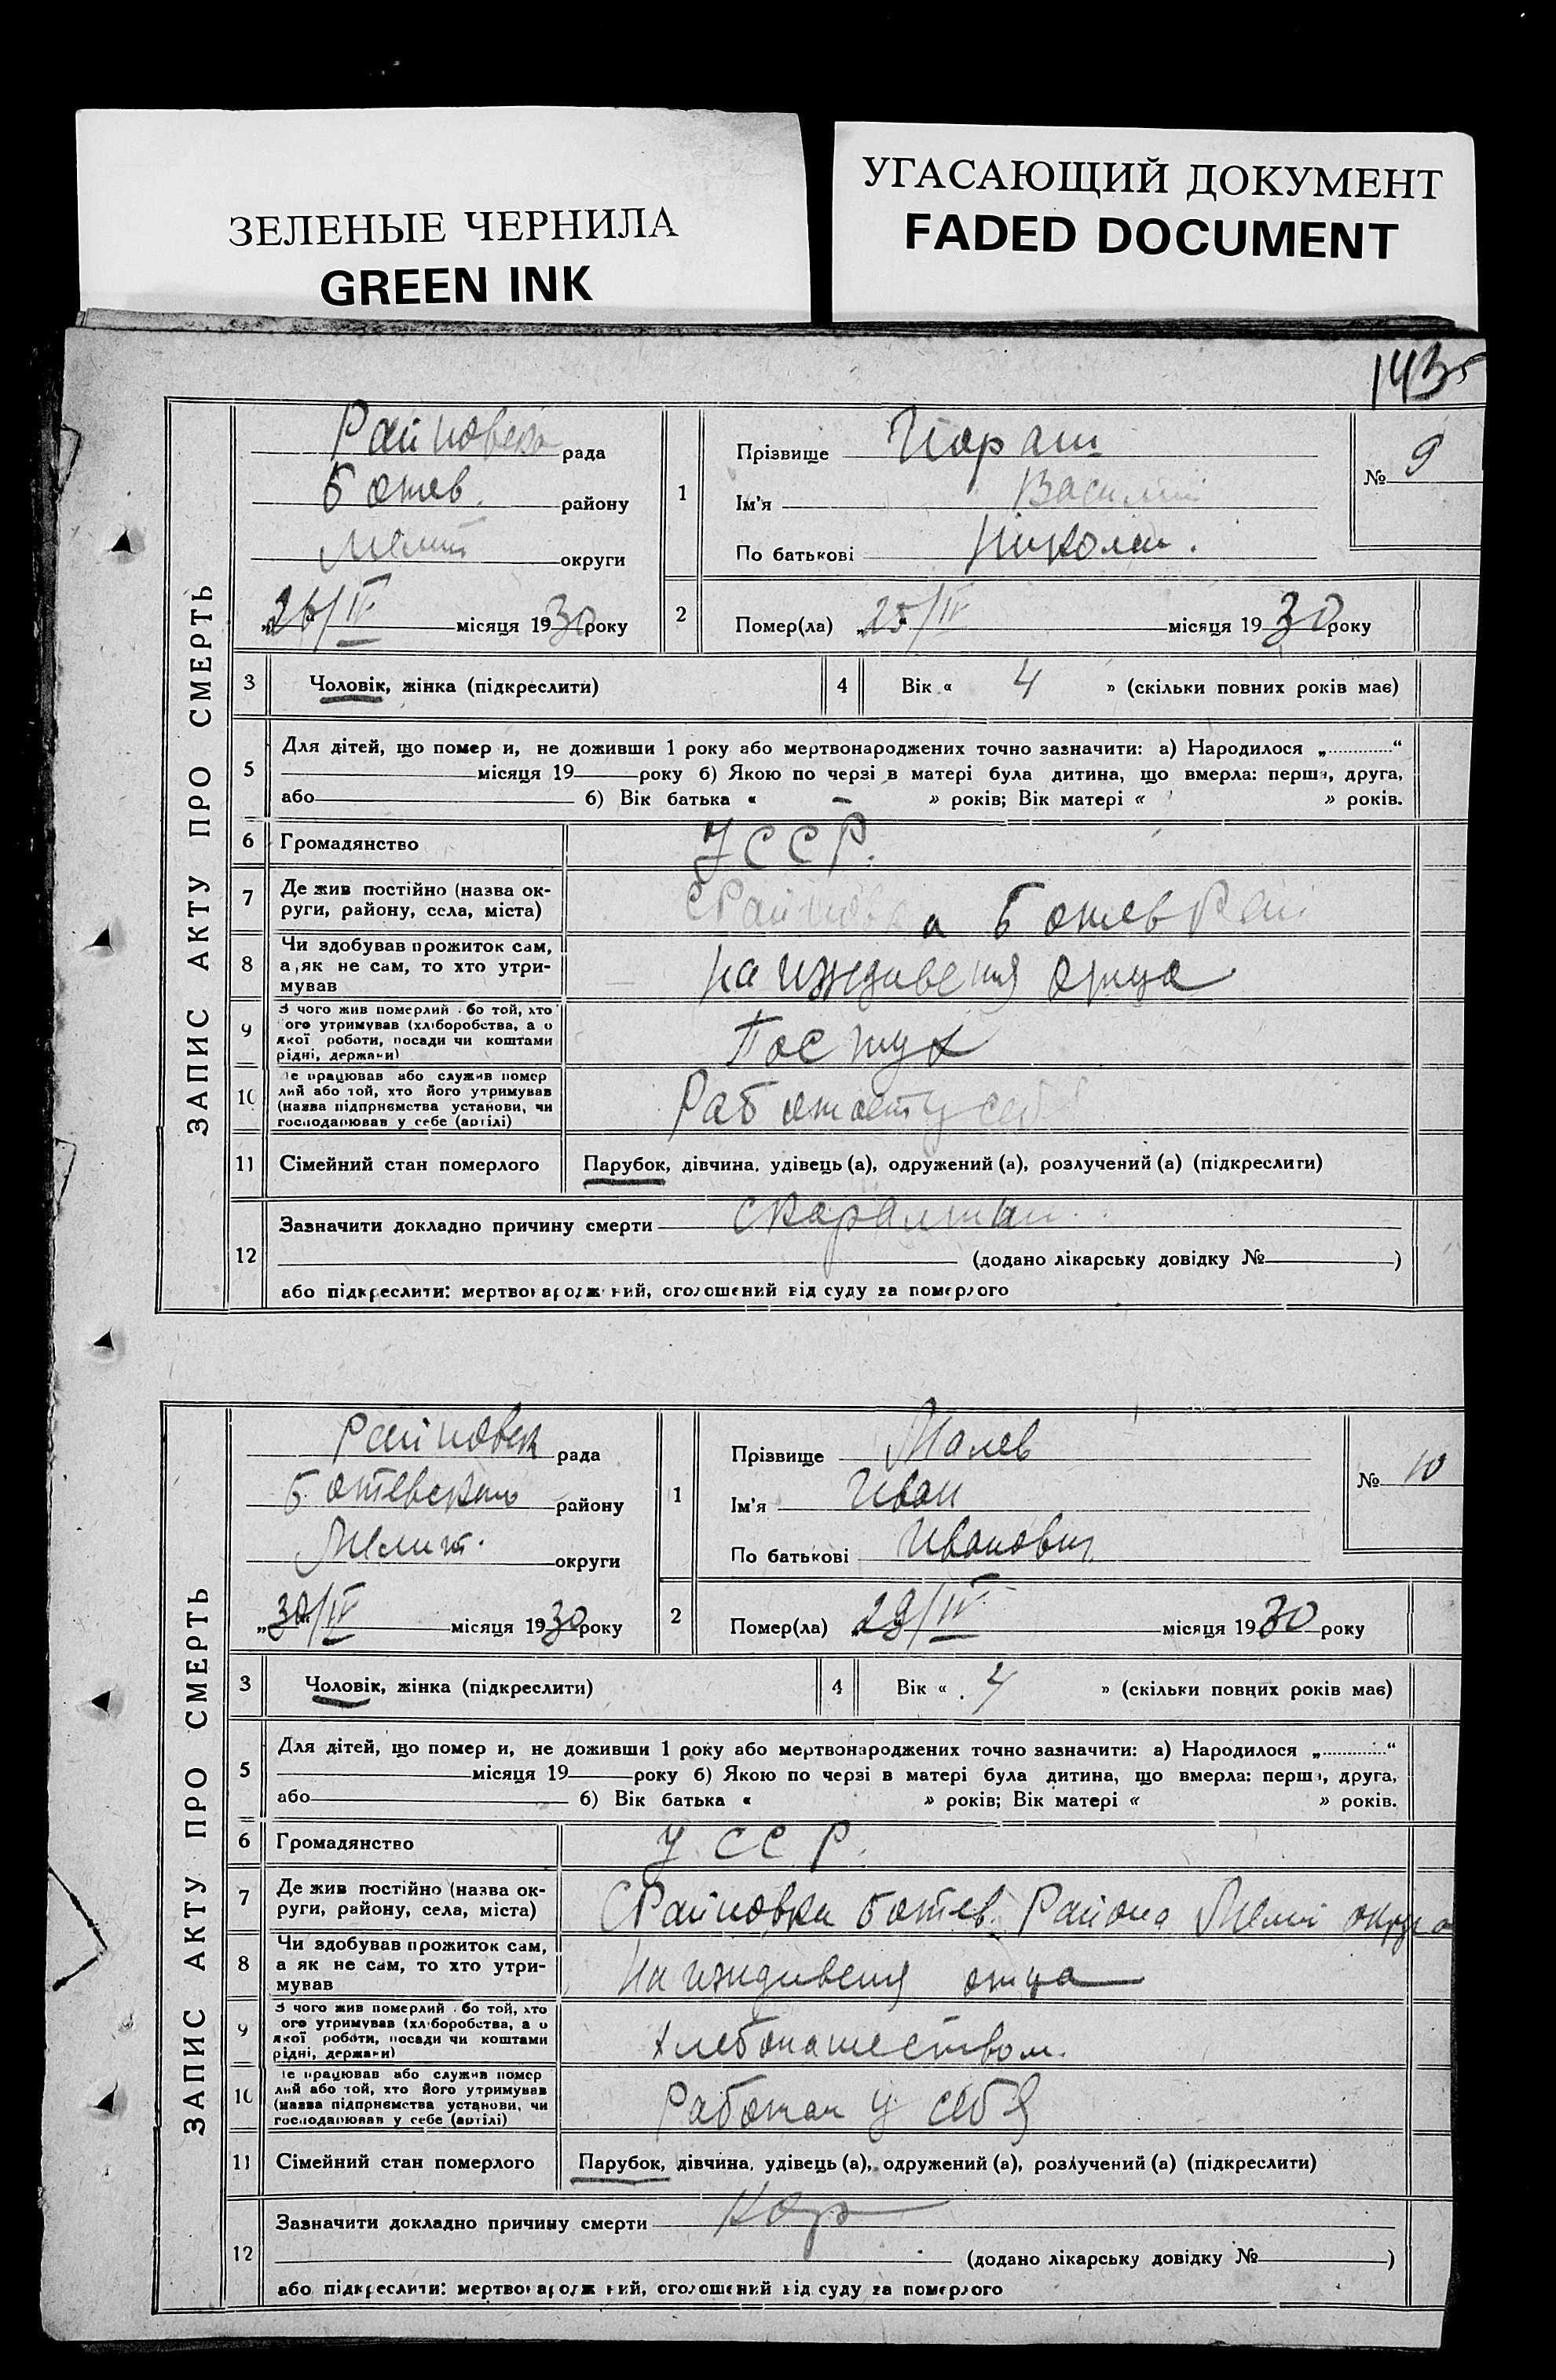 ЗЕЛЕНЫЕ ЧЕРНИЛА
GREEN INK
УГАСАЮЩИЙ ДОКУМЕНТ
FADED DOCUMENT
143
ЗАПИС АКТУ ПРО СМЕРТЬ
рада
Ботев. району
Мелит округи
26/IV місяця 1930 року
1
Прізвище
Ім'я Василий
По батькові Николаи.
№ 9
2
Помер(ла) „25/IV місяця 1930 року
3
Чоловік, жінка (підкреслити)
4
Вік « 4 » (скільки повних років має)
5
Для дітей, що помер и, не доживши 1 року або мертвонароджених точно зазначити: а) Народилося „............“
місяця 19 року б) Якою по черзі в матері була дитина, що вмерла: перша, друга,
або б) Вік батька « – » років; Вік матері « » років.
6
Громадянство
УССР.
7
Де жив постійно (назва ок-
руги, району, села, міста)
Ботев Рай
8
Чи здобував прожиток сам,
а як не сам, то хто утри-
мував
на иждивения отца
9
З чого жив померлий або той, хто
ого утримував (хліборобства, а о
якої роботи, посади чи коштами
рідні, держави)
Пастух
10
е працював або служив помер
лий або той, хто його утримував
(назва підприємства установи, чи
господарював у себе (артілі)
Работает у себя
11
Сімейний стан померлого
Парубок, дівчина, удівець (а), одружений (а), розлучений (а) (підкреслити)
12
Зазначити докладно причину смерти
(додано лікарську довідку № )
або підкреслити: мертвонароджений, оголошений від суду за померлого
ЗАПИС АКТУ ПРО СМЕРТЬ
рада
Ботевского району
Мелит. округи
„30/IV місяця 1930 року
1
Прізвище Малев
Ім'я Иван
По батькові Иванович
№ 10
2
Помер(ла) 29/IV місяця 1930 року
3
Чоловік, жінка (підкреслити)
4
Вік « 4 » (скільки повних років має)
5
Для дітей, що помер и, не доживши 1 року або мертвонароджених точно зазначити: а) Народилося „............“
місяця 19 року б) Якою по черзі в матері була дитина, що вмерла: перша, друга,
або б) Вік батька « » років; Вік матері « » років.
6
Громадянство
УССР.
7
Де жив постійно (назва ок-
руги, району, села, міста)
С Райновка Ботев. Района Мели округа
8
Чи здобував прожиток сам,
а як не сам, то хто утри-
мував
на иждивения отца
9
З чого жив померлий або той, хто
ого утримував (хліборобства, а о
якої роботи, посади чи коштами
рідні, держави)
хлебопашеством.
10
е працював або служив помер
лий або той, хто його утримував
(назва підприємства установи, чи
господарював у себе (артілі)
Работал у себя
11
Сімейний стан померлого
Парубок, дівчина, удівець (а), одружений (а), розлучений (а) (підкреслити)
12
Зазначити докладно причину смерти Кор
(додано лікарську довідку № )
або підкреслити: мертвонароджений, оголошений від суду за померлого